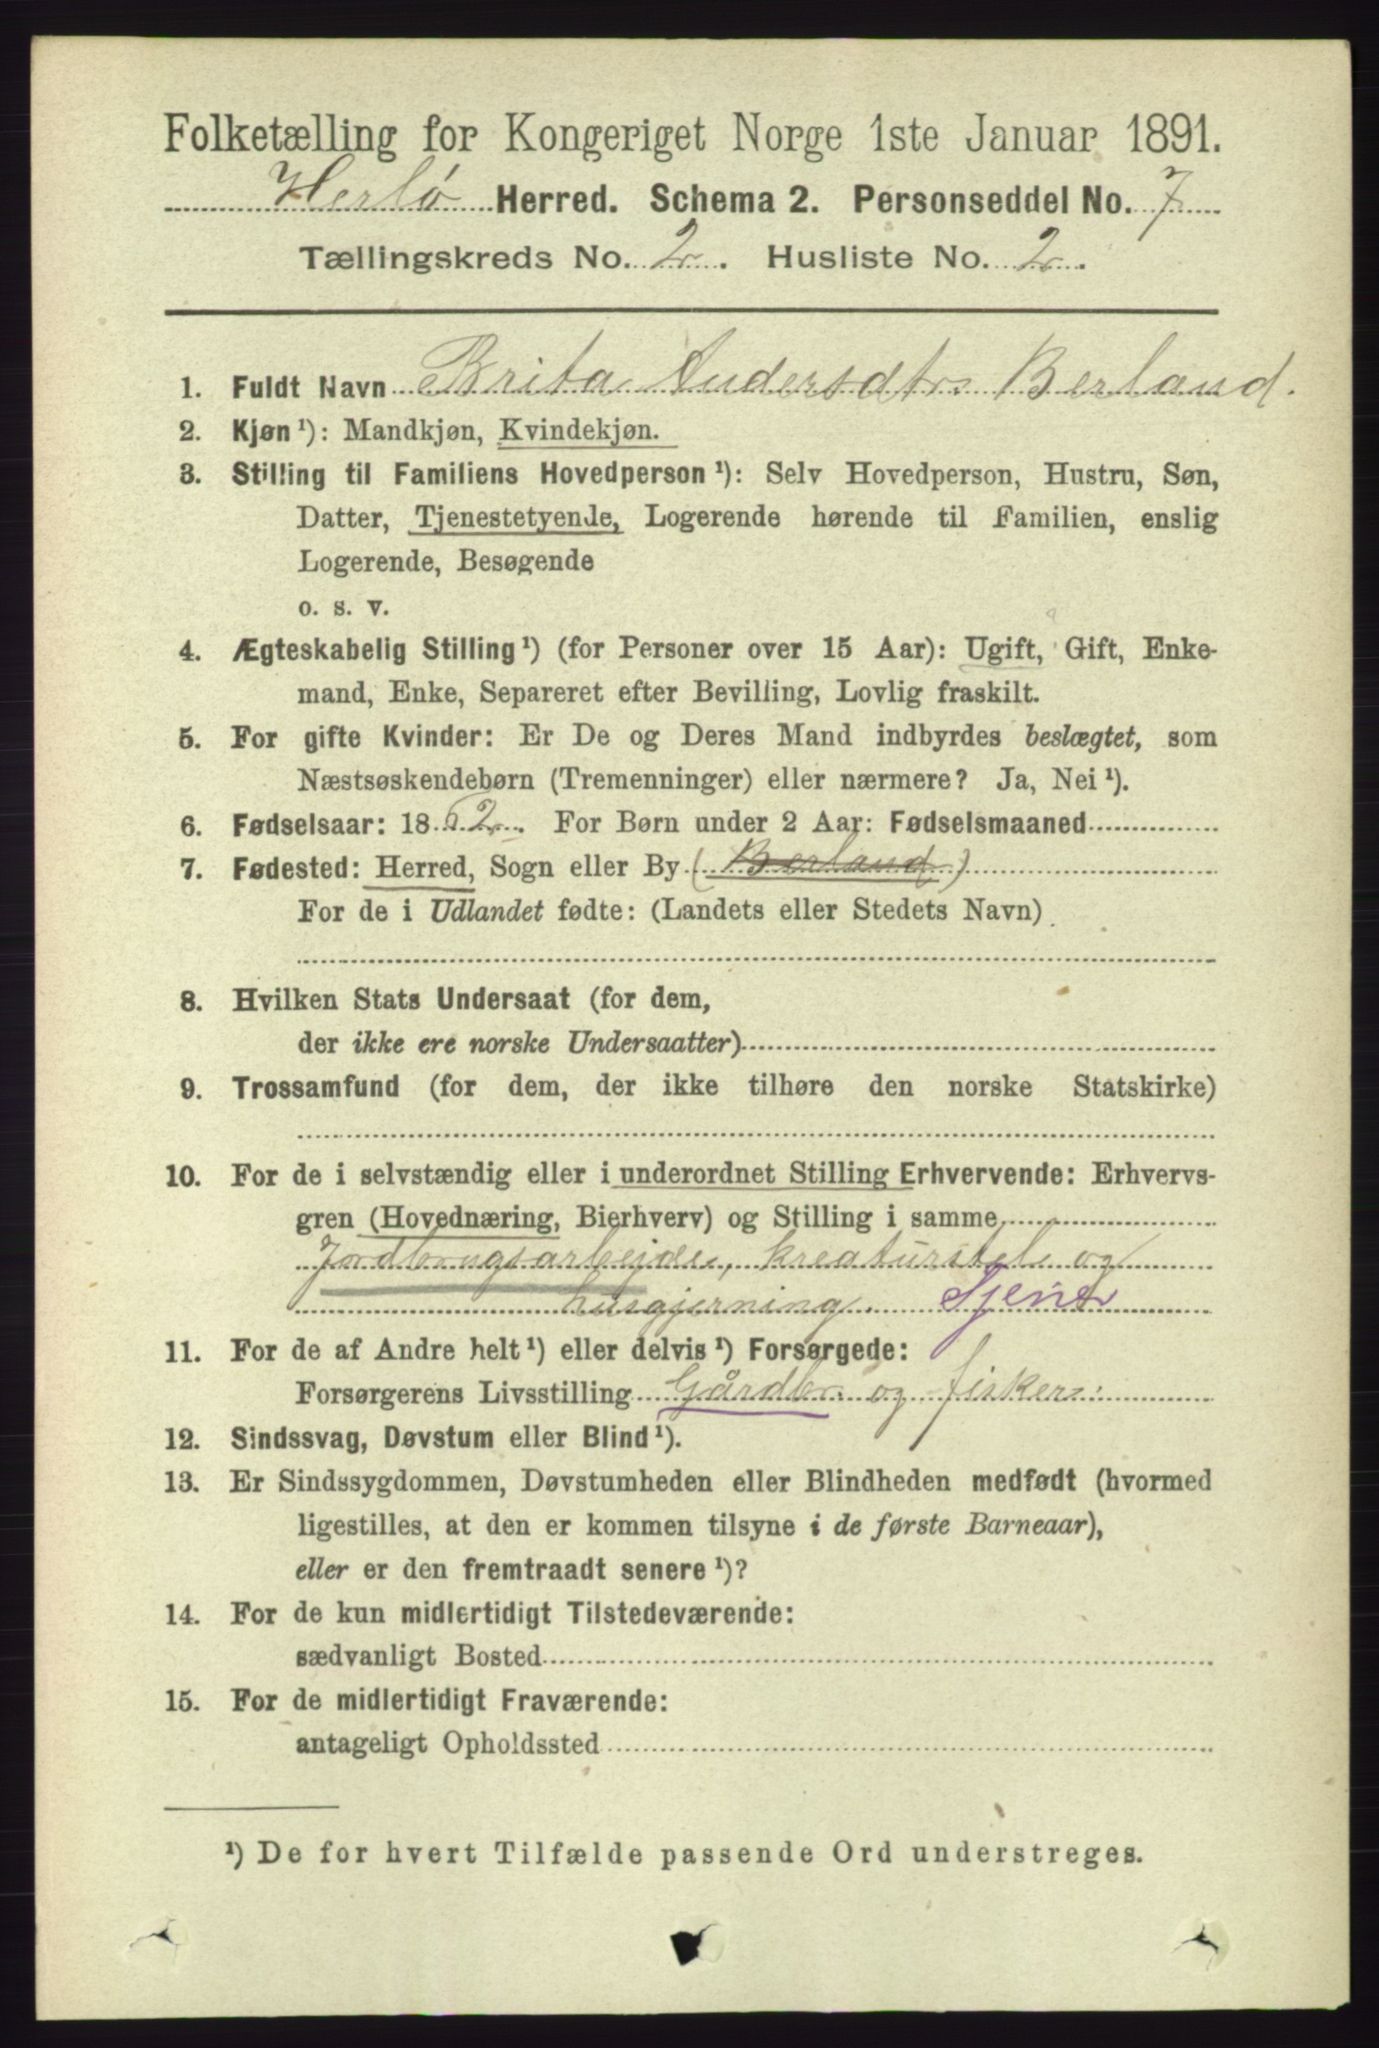 Folketælling for Kongeriget Norge 1ste Januar 1891.
Herlø Herred. Schema 2. Personseddel No. 7
Tællingskreds No. 2. Husliste No. 2.
1. Fuldt Navn Brita Andersdtr. Berland.
2. Kjøn ¹): Mandkjøn, Kvindekjøn.
3. Stilling til Familiens Hovedperson ¹): Selv Hovedperson, Hustru, Søn,
Datter, Tjenestetyende, Logerende hørende til Familien, enslig
Logerende, Besøgende
o. s. v.
4. Ægteskabelig Stilling ¹) (for Personer over 15 Aar): Ugift, Gift, Enke-
mand, Enke, Separeret efter Bevilling, Lovlig fraskilt.
5. For gifte Kvinder: Er De og Deres Mand indbyrdes beslægtet, som
Næstsøskendebørn (Tremenninger) eller nærmere? Ja, Nei ¹).
6. Fødselsaar: 1862. For Børn under 2 Aar: Fødselsmaaned
7. Fødested: Herred, Sogn eller By (Berland)
For de i Udlandet fødte: (Landets eller Stedets Navn)
8. Hvilken Stats Undersaat (for dem,
der ikke ere norske Undersaatter)
9. Trossamfund (for dem, der ikke tilhøre den norske Statskirke)
10. For de i selvstændig eller i underordnet Stilling Erhvervende: Erhvervs-
gren (Hovednæring, Bierhverv) og Stilling i samme
Jordbrugsarbejde, kreaturstel og
husgjerning. Tjener
11. For de af Andre helt ¹) eller delvis ¹) Forsørgede:
Forsørgerens Livsstilling Gårdbr. og fisker.
12. Sindssvag, Døvstum eller Blind ¹).
13. Er Sindssygdommen, Døvstumheden eller Blindheden medfødt (hvormed
ligestilles, at den er kommen tilsyne i de første Barneaar),
eller er den fremtraadt senere ¹)?
14. For de kun midlertidigt Tilstedeværende:
sædvanligt Bosted
15. For de midlertidigt Fraværende:
antageligt Opholdssted
¹) De for hvert Tilfælde passende Ord understreges.